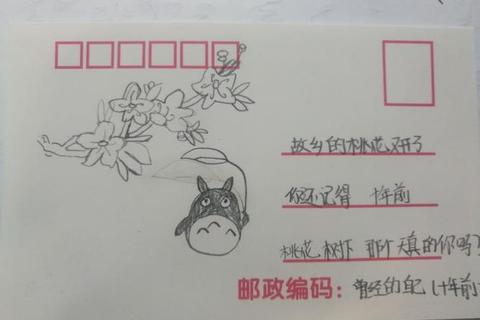 故乡的桃花又开了
你还记得 十年前
桃花树下 那个天真的你吗?
邮政编码: 曾经的自己(十年前